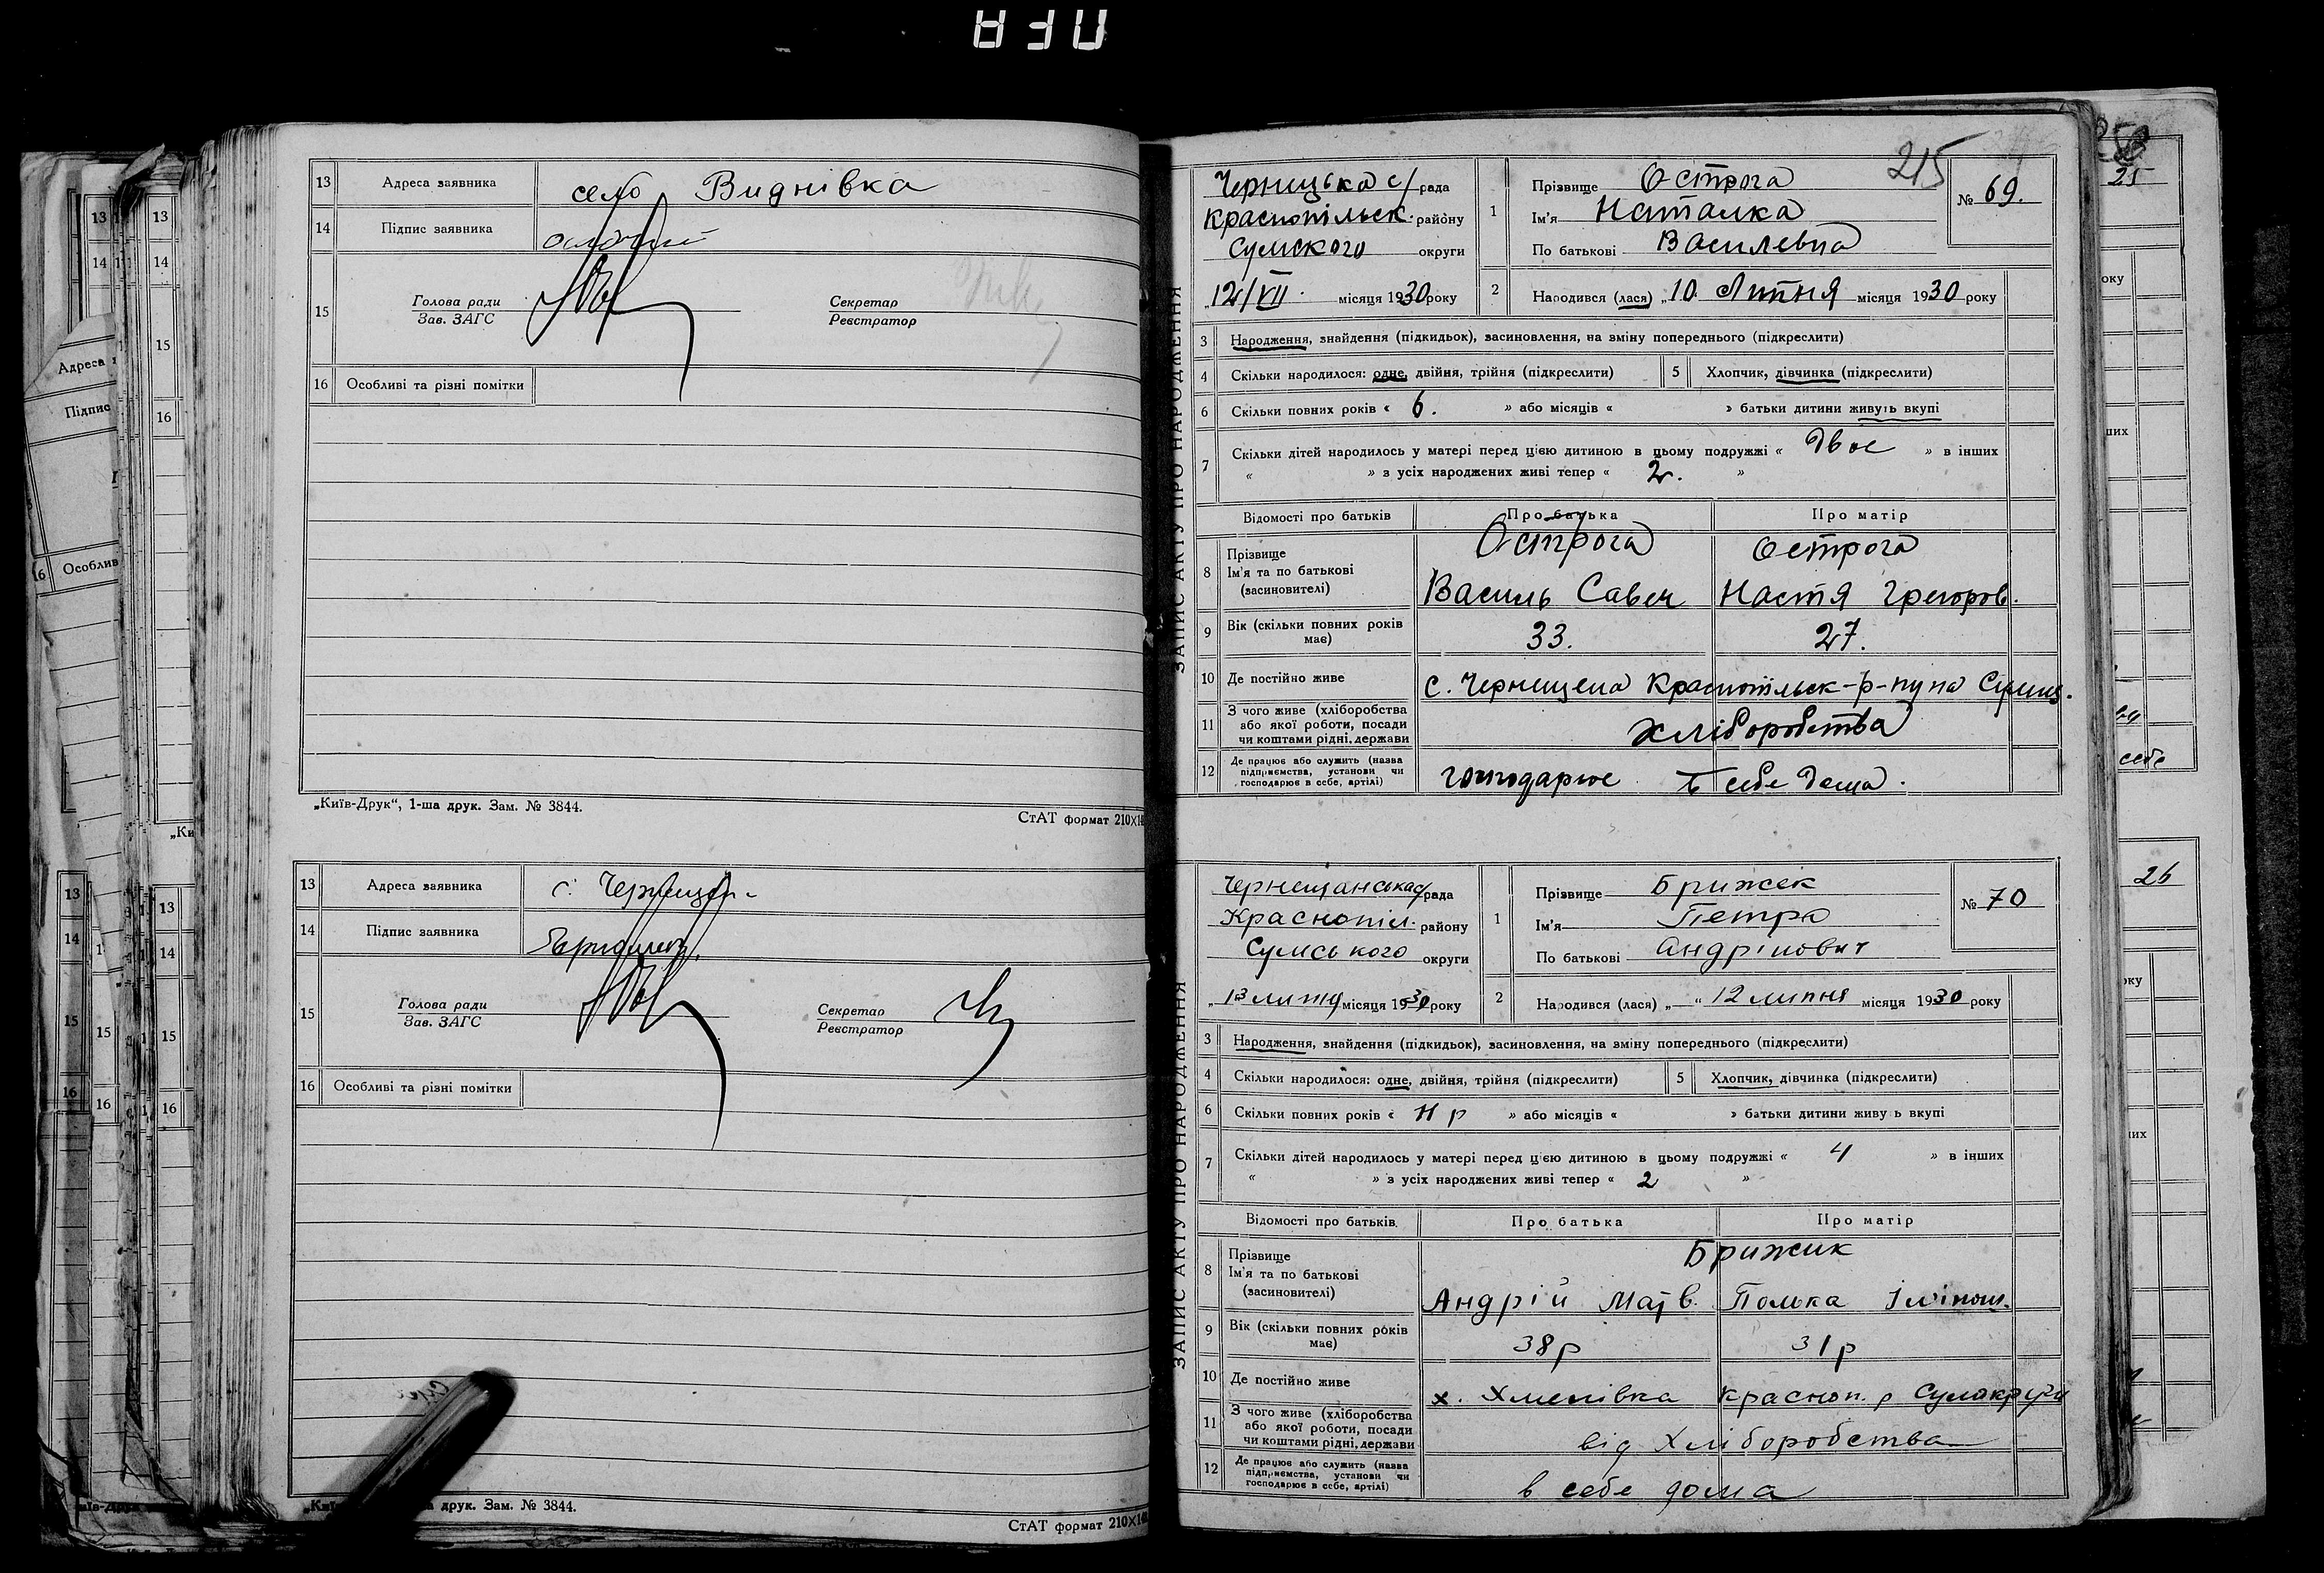 13 Адреса заявника село Виднівка
14 Підпис заявника
15 Голова ради Секретар
Зав. ЗАГС Реєстратор
16 Особливі та різні помітки
„Київ-Друк“, 1-ша друк. Зам. № 3844.
СтАТ формат 210×14
13 Адреса заявника с.
14 Підпис заявника
15 Голова ради Секретар
Зав. ЗАГС Реєстратор
16 Особливі та різні помітки
друк. Зам. № 3844.
СтАТ формат 210×14
ЗАПИС АКТУ ПРО НАРОДЖЕННЯ
215
Черницька с/рада
Краснопільск. району
Сумского округи
„12/VII місяця 1930 року
1 Прізвище Острога
Ім'я Наталка
По батькові Василевна
№ 69.
2 Народився (лася) „10 Липня місяця 1930 року
3 Народження, знайдення (підкидьок), засиновлення, на зміну попереднього (підкреслити)
4 Скільки народилося: одне, двійня, трійня (підкреслити) 5 Хлопчик, дівчинка (підкреслити)
6 Скільки повних років « 6. » або місяців « » батьки дитини живуть вкупі
7 Скільки дітей народилось у матері перед цією дитиною в цьому подружжі « Двое » в інших
« » з усіх народжених живі тепер « 2. »
Відомості про батьків Про батька Про матір
8 Прізвище Острога Острога
Ім'я та по батькові
(засиновителі) Василь Савеч Настя Грегоров.
9 Вік (скільки повних років має) 33. 27.
10 Де постійно живе с. Чернещена Краснопільск-р-ну на
11 З чого живе (хліборобства
або якої роботи, посади
чи коштами рідні, держави Хліборобства
12 Де працює або служить (назва
підприємства, установи чи
господарює в себе, артілі) господарює в себе дома.
ЗАПИС АКТУ ПРО НАРОДЖЕННЯ
Чернещанська с/рада
Краснопіл. району
Сумського округи
„13 липня місяця 1930 року
1 Прізвище Брижек
Ім'я Петра
По батькові Андрійович
№ 70
2 Народився (лася) „ “ 12 липня місяця 1930 року
3 Народження, знайдення (підкидьок), засиновлення, на зміну попереднього (підкреслити)
4 Скільки народилося: одне, двійня, трійня (підкреслити) 5 Хлопчик, дівчинка (підкреслити)
6 Скільки повних років « 11 р » або місяців « » батьки дитини живуть вкупі
7 Скільки дітей народилось у матері перед цією дитиною в цьому подружжі « 4 » в інших
« » з усіх народжених живі тепер « 2 »
Відомості про батьків Про батька Про матір
8 Прізвище Брижик
Ім'я та по батькові
(засиновителі) Андрій Матв. Полька
9 Вік (скільки повних років має) 38 р 31 р
10 Де постійно живе х. Хменівка Красноп. р Сумокруги
11 З чого живе (хліборобства
або якої роботи, посади
чи коштами рідні, держави від Хліборобства
12 Де працює або служить (назва
підприємства, установи чи
господарює в себе, артілі) в себе дома